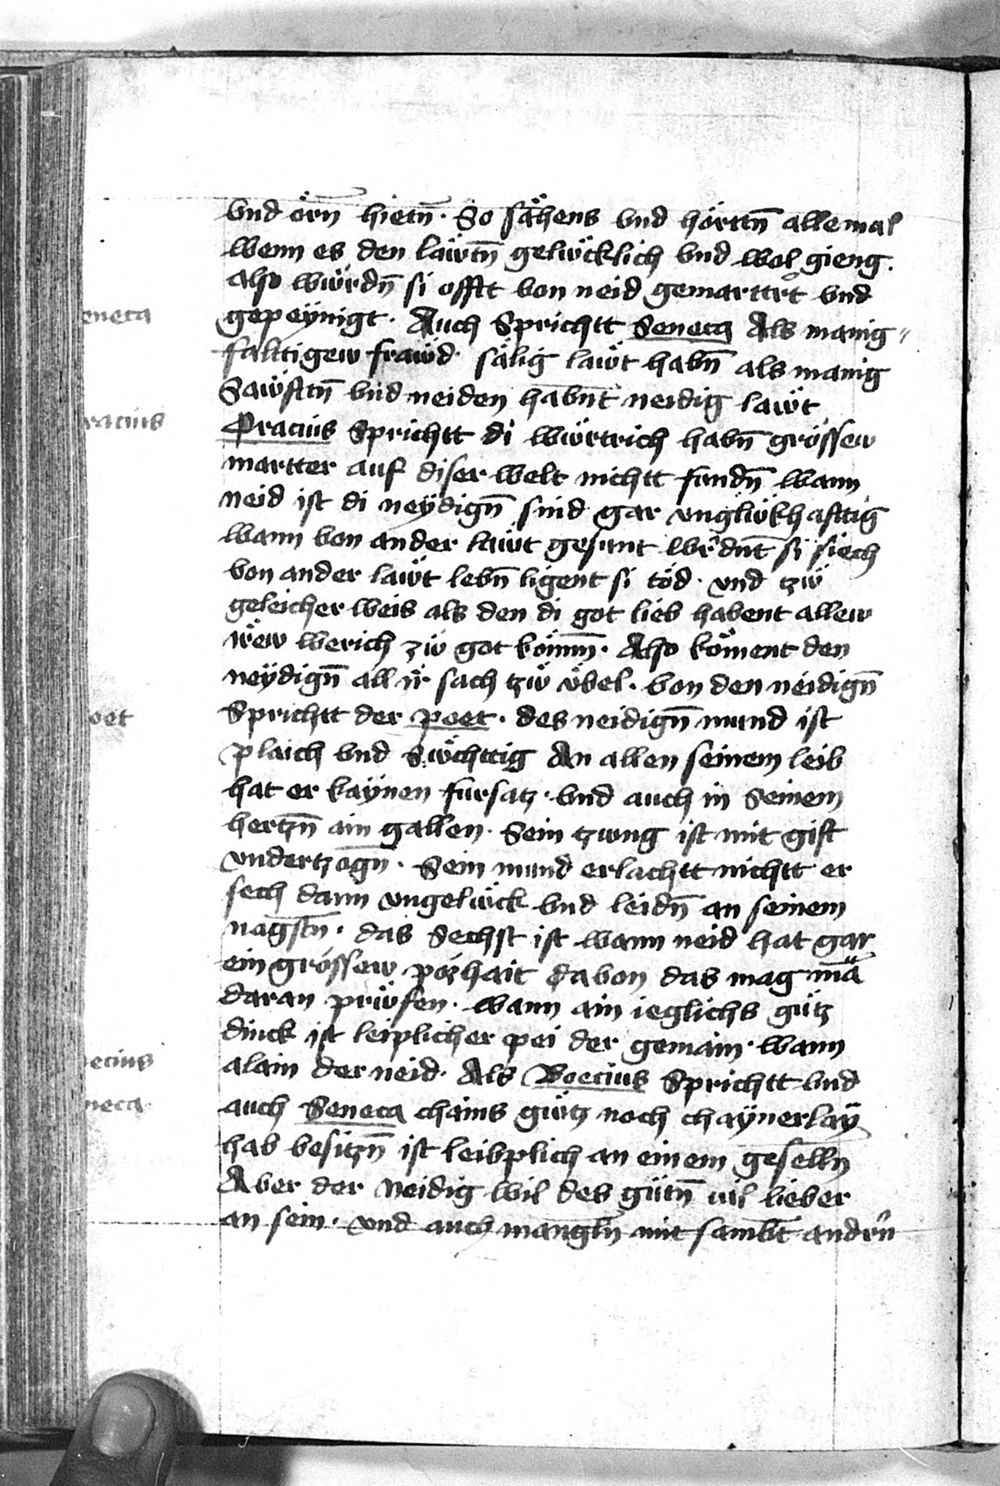 vnd örn̄ hietn̄. So sähens vnd hörttn̄ alle mal
wenn es den läwtn̄ gelwcklich vnd wol gieng.
also wẅrdn̄ si offtt von neid gemarttrt vnd
gepeÿnigt. Auch Sprichtt Seneca Als manig
faltigew frawd sälig lawt habn̄ als manig
Sawfftn̄ vnd neiden habnt neidig lawt
Oracius Sprichtt di wẅrtrich habn̄ grössew
martter auf diser welt nichtt fundn̄ wann
neid ist di neÿdign̄ sind gar vnglẅkhafttig
wann von ander läwt gesunt wrdnt si siech
von ander läwt lebn̄ ligent si töd. vnd tzw
geleicher weis als den di got lieb habent allew
irew werich zw got kömm̄. Also köment den
neÿdign̄ all ir sach tzw vbel. von den neidign̄
Sprichtt der poet. des neidign̄ mund ist
plaich vnd swchttig An allen seinem leib
hat er kaynen fursatz. vnd auch in Seinem
hertzn̄ ain gallen. Sein tzung ist mit gift
vndertzogn̄. Sein mund erlachtt nichtt er
sech dann vngelück vnd leidn̄ an seinem
nagstn̄. das Sechst ist wann neid hat gar
ein grössew pözhait dauon das mag mā
daran prwfen. wann ain ieglichs gütz
dinck ist leiplicher pei der gemain. wann
alain der neid. Als Boecius Sprichtt vnd
auch Seneca chains gütz noch chaÿnerlaÿ
hab besitzn̄ ist leibplich an einem geselln
Aber der Neidig wil des gütn̄ vil lieber
an sein. vnd auch mangln̄ mit sambt andrn̄
eneca
racius
oet
oecius
neca